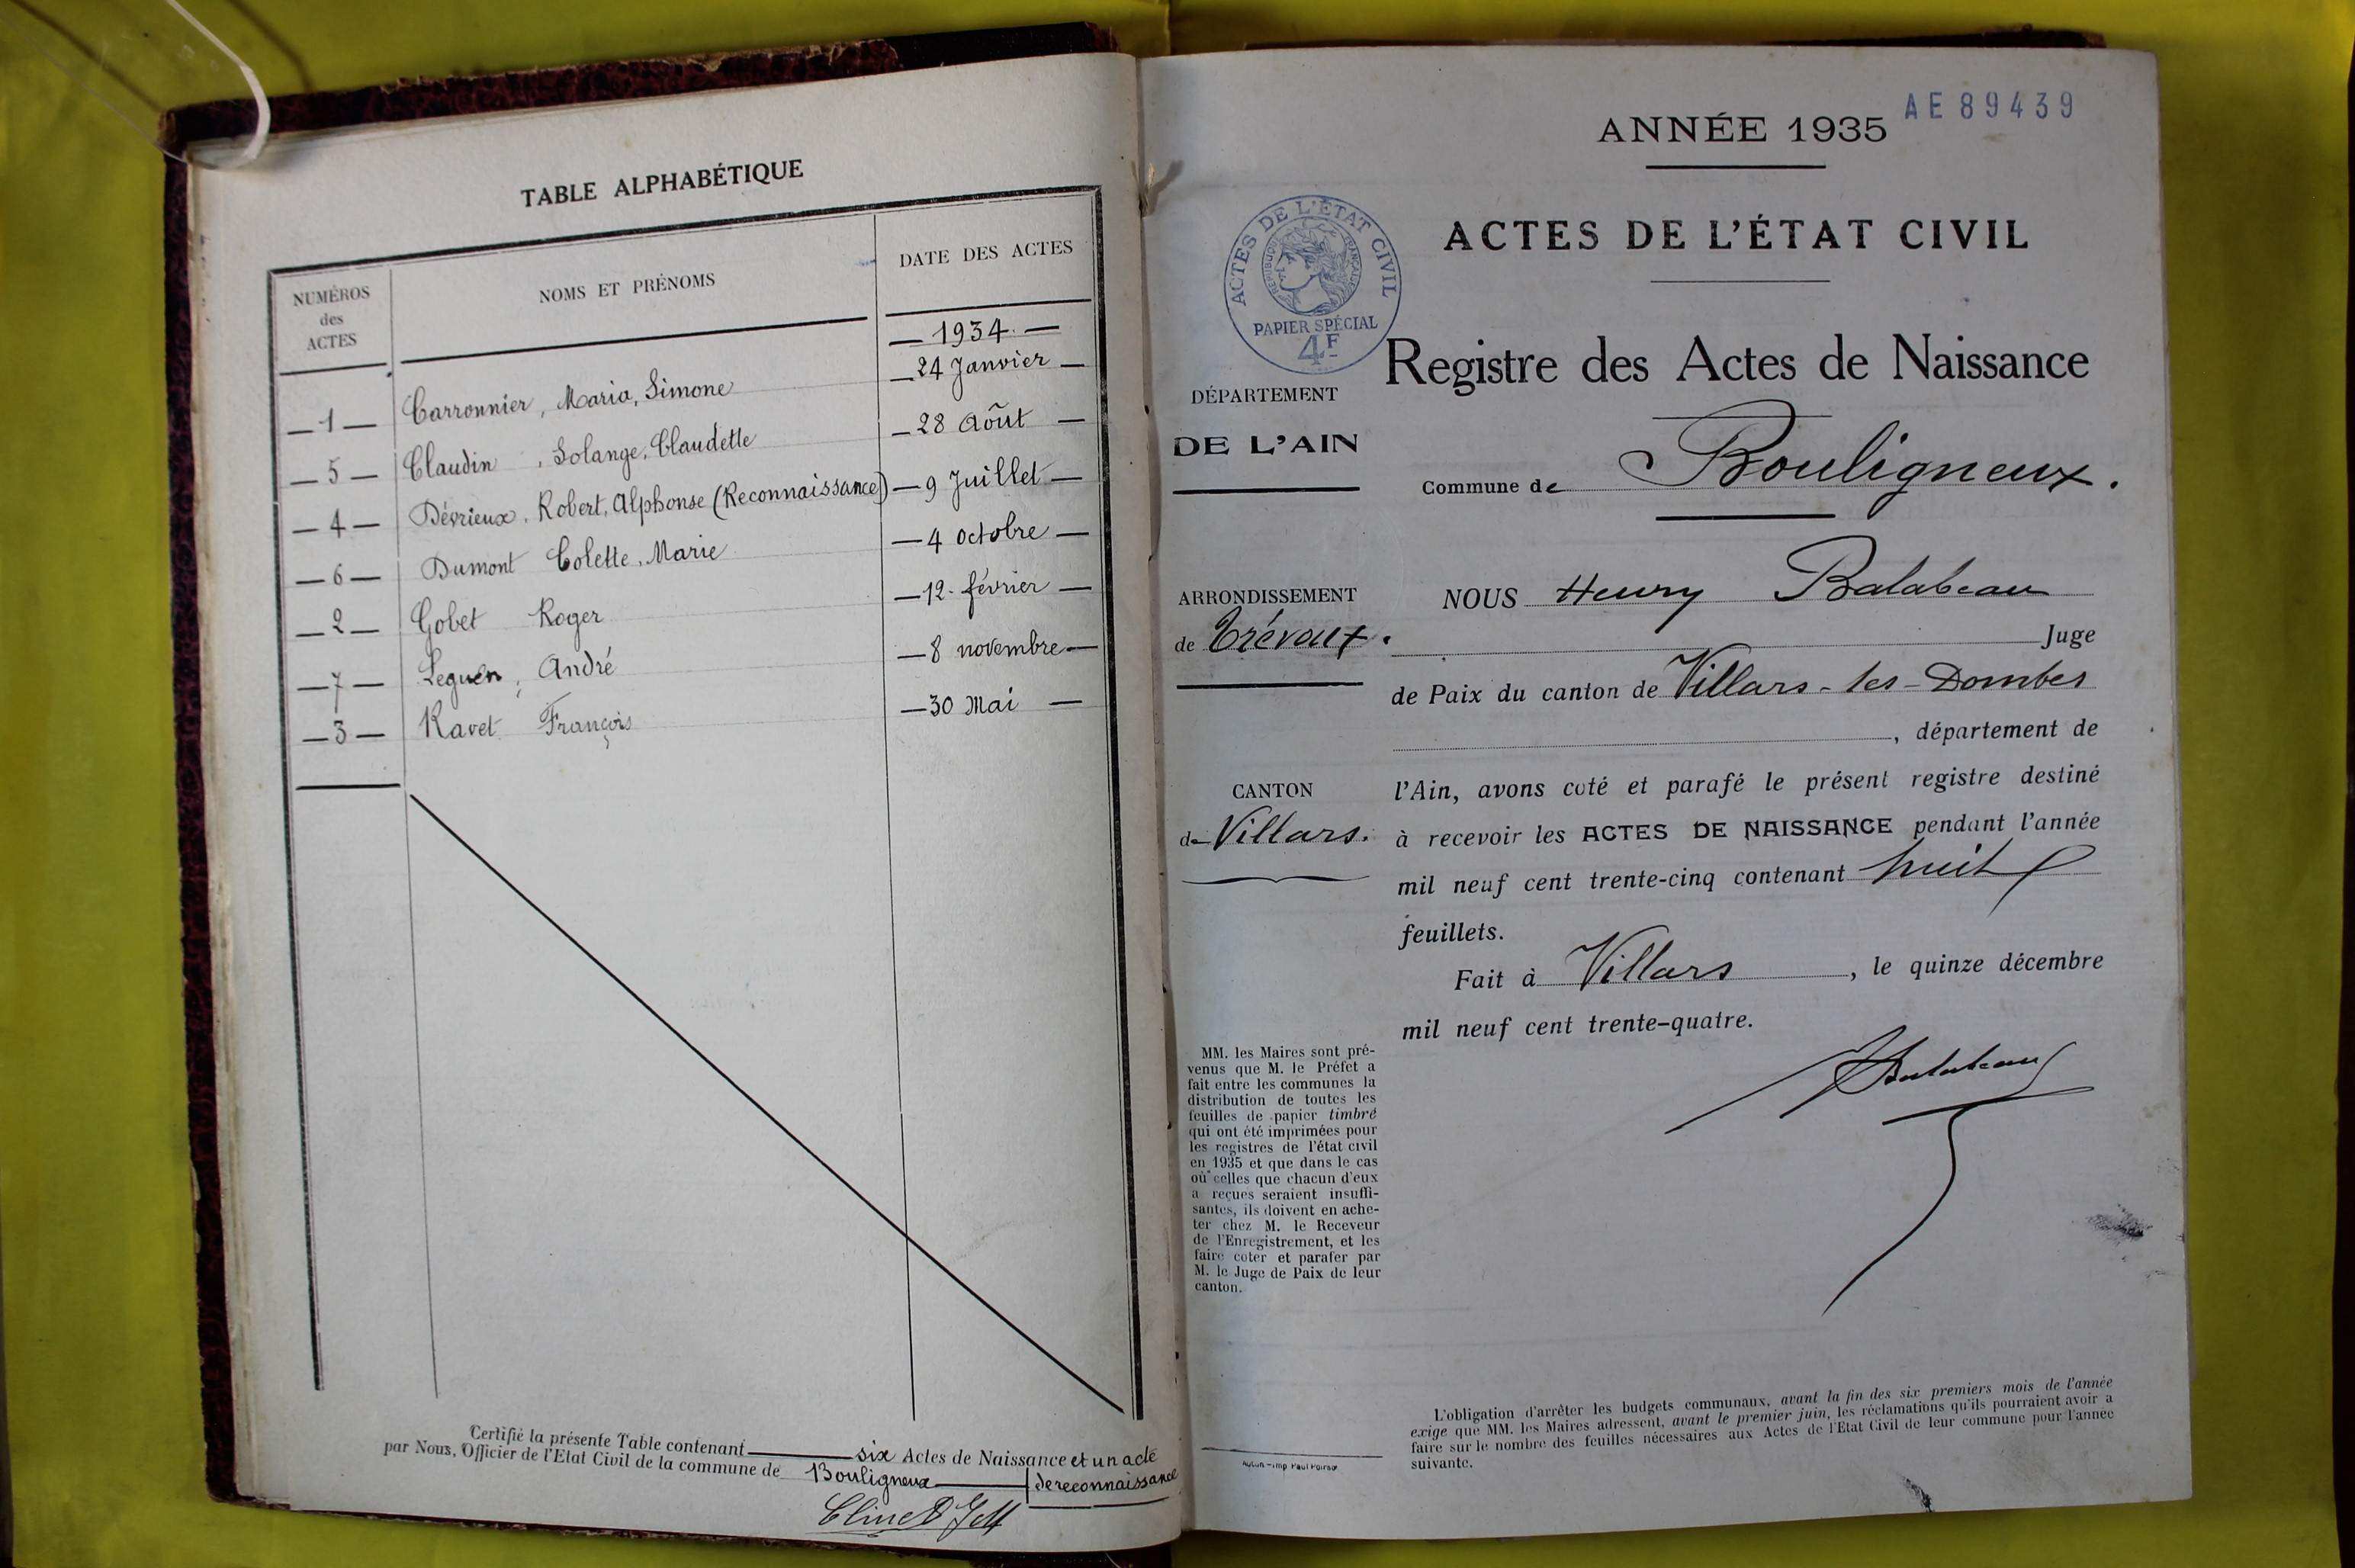 TABLE ALPHABÉTIQUE
NUMÉROS des ACTES
NOMS ET PRÉNOMS
DATE DES ACTES
— 1934 —
— 1 — Carronnier, Maria, Simone — 24 Janvier —
— 5 — Claudin, Solange, Claudette — 28 Août —
— 4 — Dévrieux, Robert, Alphonse (Reconnaissance) — 9 Juillet —
— 6 — Dumont Colette, Marie — 4 octobre —
— 2 — Gobet Roger — 12 février —
— 7 — Leguen, André — 8 novembre —
— 3 — Ravet François — 30 Mai —
Certifié la présente Table contenant six Actes de Naissance et un acte
par Nous, Officier de l'Etat Civil de la commune de Bouligneux de reconnaissance
AE 89439
ANNÉE 1935
ACTES DE L'ÉTAT CIVIL
ACTES DE L'ÉTAT CIVIL
RÉPUBLIQUE FRANÇAISE
PAPIER SPÉCIAL
4F
Registre des Actes de Naissance
DÉPARTEMENT
DE L'AIN
Commune de Bouligneux.
ARRONDISSEMENT
de Trévoux.
CANTON
de Villars.
NOUS Henry Balabeau
Juge
de Paix du canton de Villars-les-Dombes
, département de
l'Ain, avons coté et parafé le présent registre destiné
à recevoir les ACTES DE NAISSANCE pendant l'année
mil neuf cent trente-cinq contenant huit
feuillets.
Fait à Villars, le quinze décembre
mil neuf cent trente-quatre.
Balabeau
MM. les Maires sont pré-
venus que M. le Préfet a
fait entre les communes la
distribution de toutes les
feuilles de papier timbré
qui ont été imprimées pour
les registres de l'état civil
en 1935 et que dans le cas
où celles que chacun d'eux
a reçues seraient insuffi-
santes, ils doivent en ache-
ter chez M. le Receveur
de l'Enregistrement, et les
faire coter et parafer par
M. le Juge de Paix de leur
canton.
L'obligation d'arrêter les budgets communaux, avant la fin des six premiers mois de l'année
exige que MM. les Maires adressent, avant le premier juin, les réclamations qu'ils pourraient avoir a
faire sur le nombre des feuilles nécessaires aux Actes de l'Etat Civil de leur commune pour l'année
suivante.